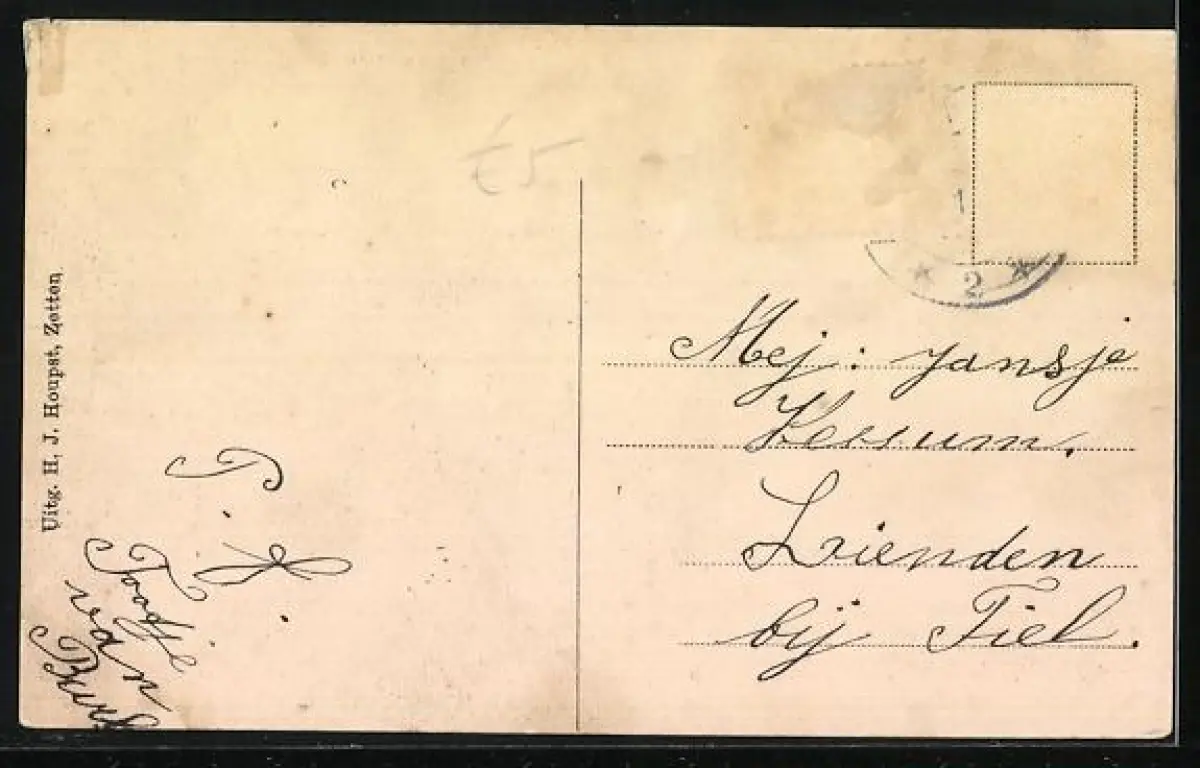 Uitg. H. J. Houpst, Zetten
€5
1
* 2 *
P. K.
Toosje
van
Mej: Jansje
Lienden
bij Tiel.